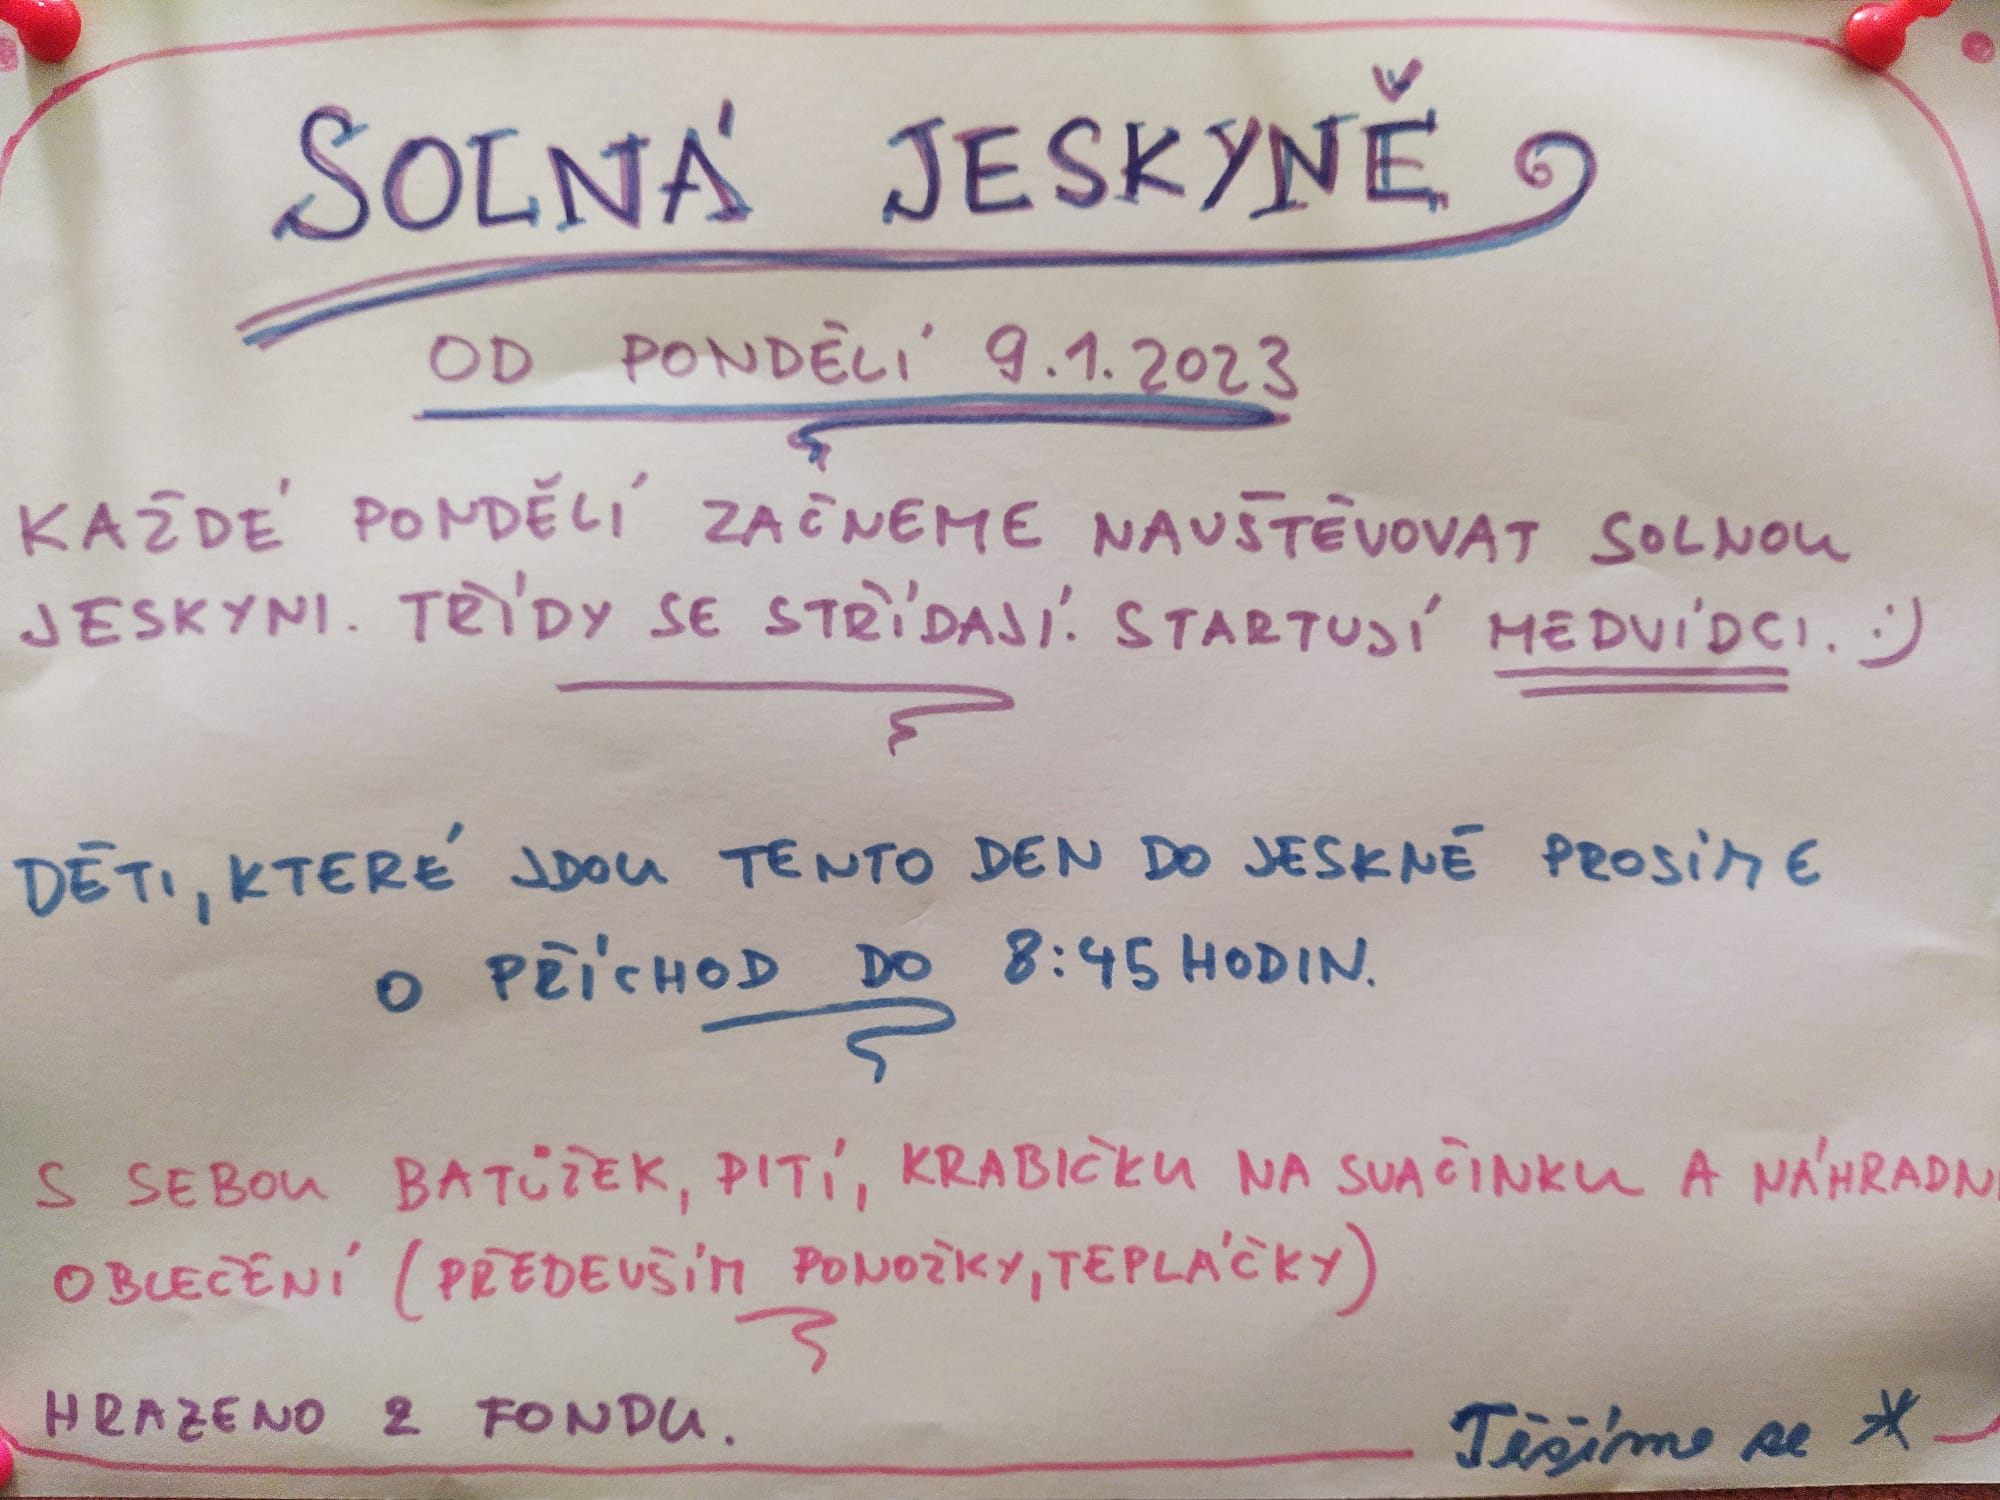 SOLNÁ JESKYNĚ
OD PONDĚLÍ 9.1.2023
KAŽDÉ PONDĚLÍ ZAČNEME NAVŠTĚVOVAT SOLNOU
JESKYNI. TŘÍDY SE STŘÍDAJÍ. STARTUJÍ MEDVÍDCI. :)
DĚTI, KTERÉ JDOU TENTO DEN DO JESKNĚ PROSÍME
O PŘÍCHOD DO 8:45 HODIN.
S SEBOU BATŮŽEK, PITÍ, KRABIČKU NA SVAČINKU A NÁHRADNÍ
OBLEČENÍ (PŘEDEVŠÍM PONOŽKY, TEPLÁČKY)
HRAZENO Z FONDU.
Těšíme se *